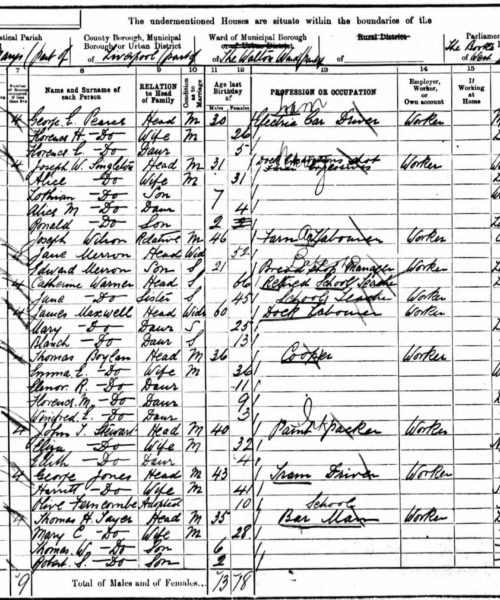 The undermentioned Houses are situate within the boundaries of the
Parish County Borough, Municipal Ward of Municipal Rural District Parliamen
(part of Borough or Urban District Borough or Urban District Boro
of Liverpool (part of of The Walton Ward (part of
7 8 9 10 11 12 13 14 15
Name and Surname of RELATION Condition Age last PROFESSION OR OCCUPATION Employer, If
each Person to Head as to Birthday Worker, or Working at
of Family Marriage of Own account Home
Males Females
4 George E. Pearce Head M 30 Electric Car Driver Worker
Florence H -Do Wife M 26
Florence E -Do Daur 5
4 Joseph W. Singleton Head M 31 Dock Worker
Alice -Do Wife M 31
Lothian -Do Son 7
Alice M -Do Daur 4
Ronald -Do Son 2
Joseph Wilson Relative M 46 Farm Labourer Worker
Jane Merron Head Wid 52
Edward Merron Son S 21 Bread Shop Manager Worker
4 Catherine Warner Head S 66 Retired School Teacher
Jane -Do Sister S 45 School Teacher Worker
4 James Maxwell Head Widr 60 Dock Labourer Worker
Mary -Do Daur S 25
Blanch -Do Daur S 13
Thomas Boylan Head M 36 Cooper Worker
Emma E -Do Wife M 36
Elenor R. -Do Daur 11
Florence M. -Do Daur 9
Winifred E -Do Daur 3
4 John J. Stewart Head M 40 Paint Packer Worker
Eliza -Do Wife M 32
Edith -Do Daur 4
4 George Jones Head M 43 Tram Driver Worker
Harriet -Do Wife M 41
Olive Ferncombe Adopted 10 School
4 Thomas H. Sayer Head M 35 Bar Man Worker
Mary C -Do Wife M 28
Thomas W. -Do Son 6
Robert S. -Do Son 2
9 Total of Males and of Females... 13 18